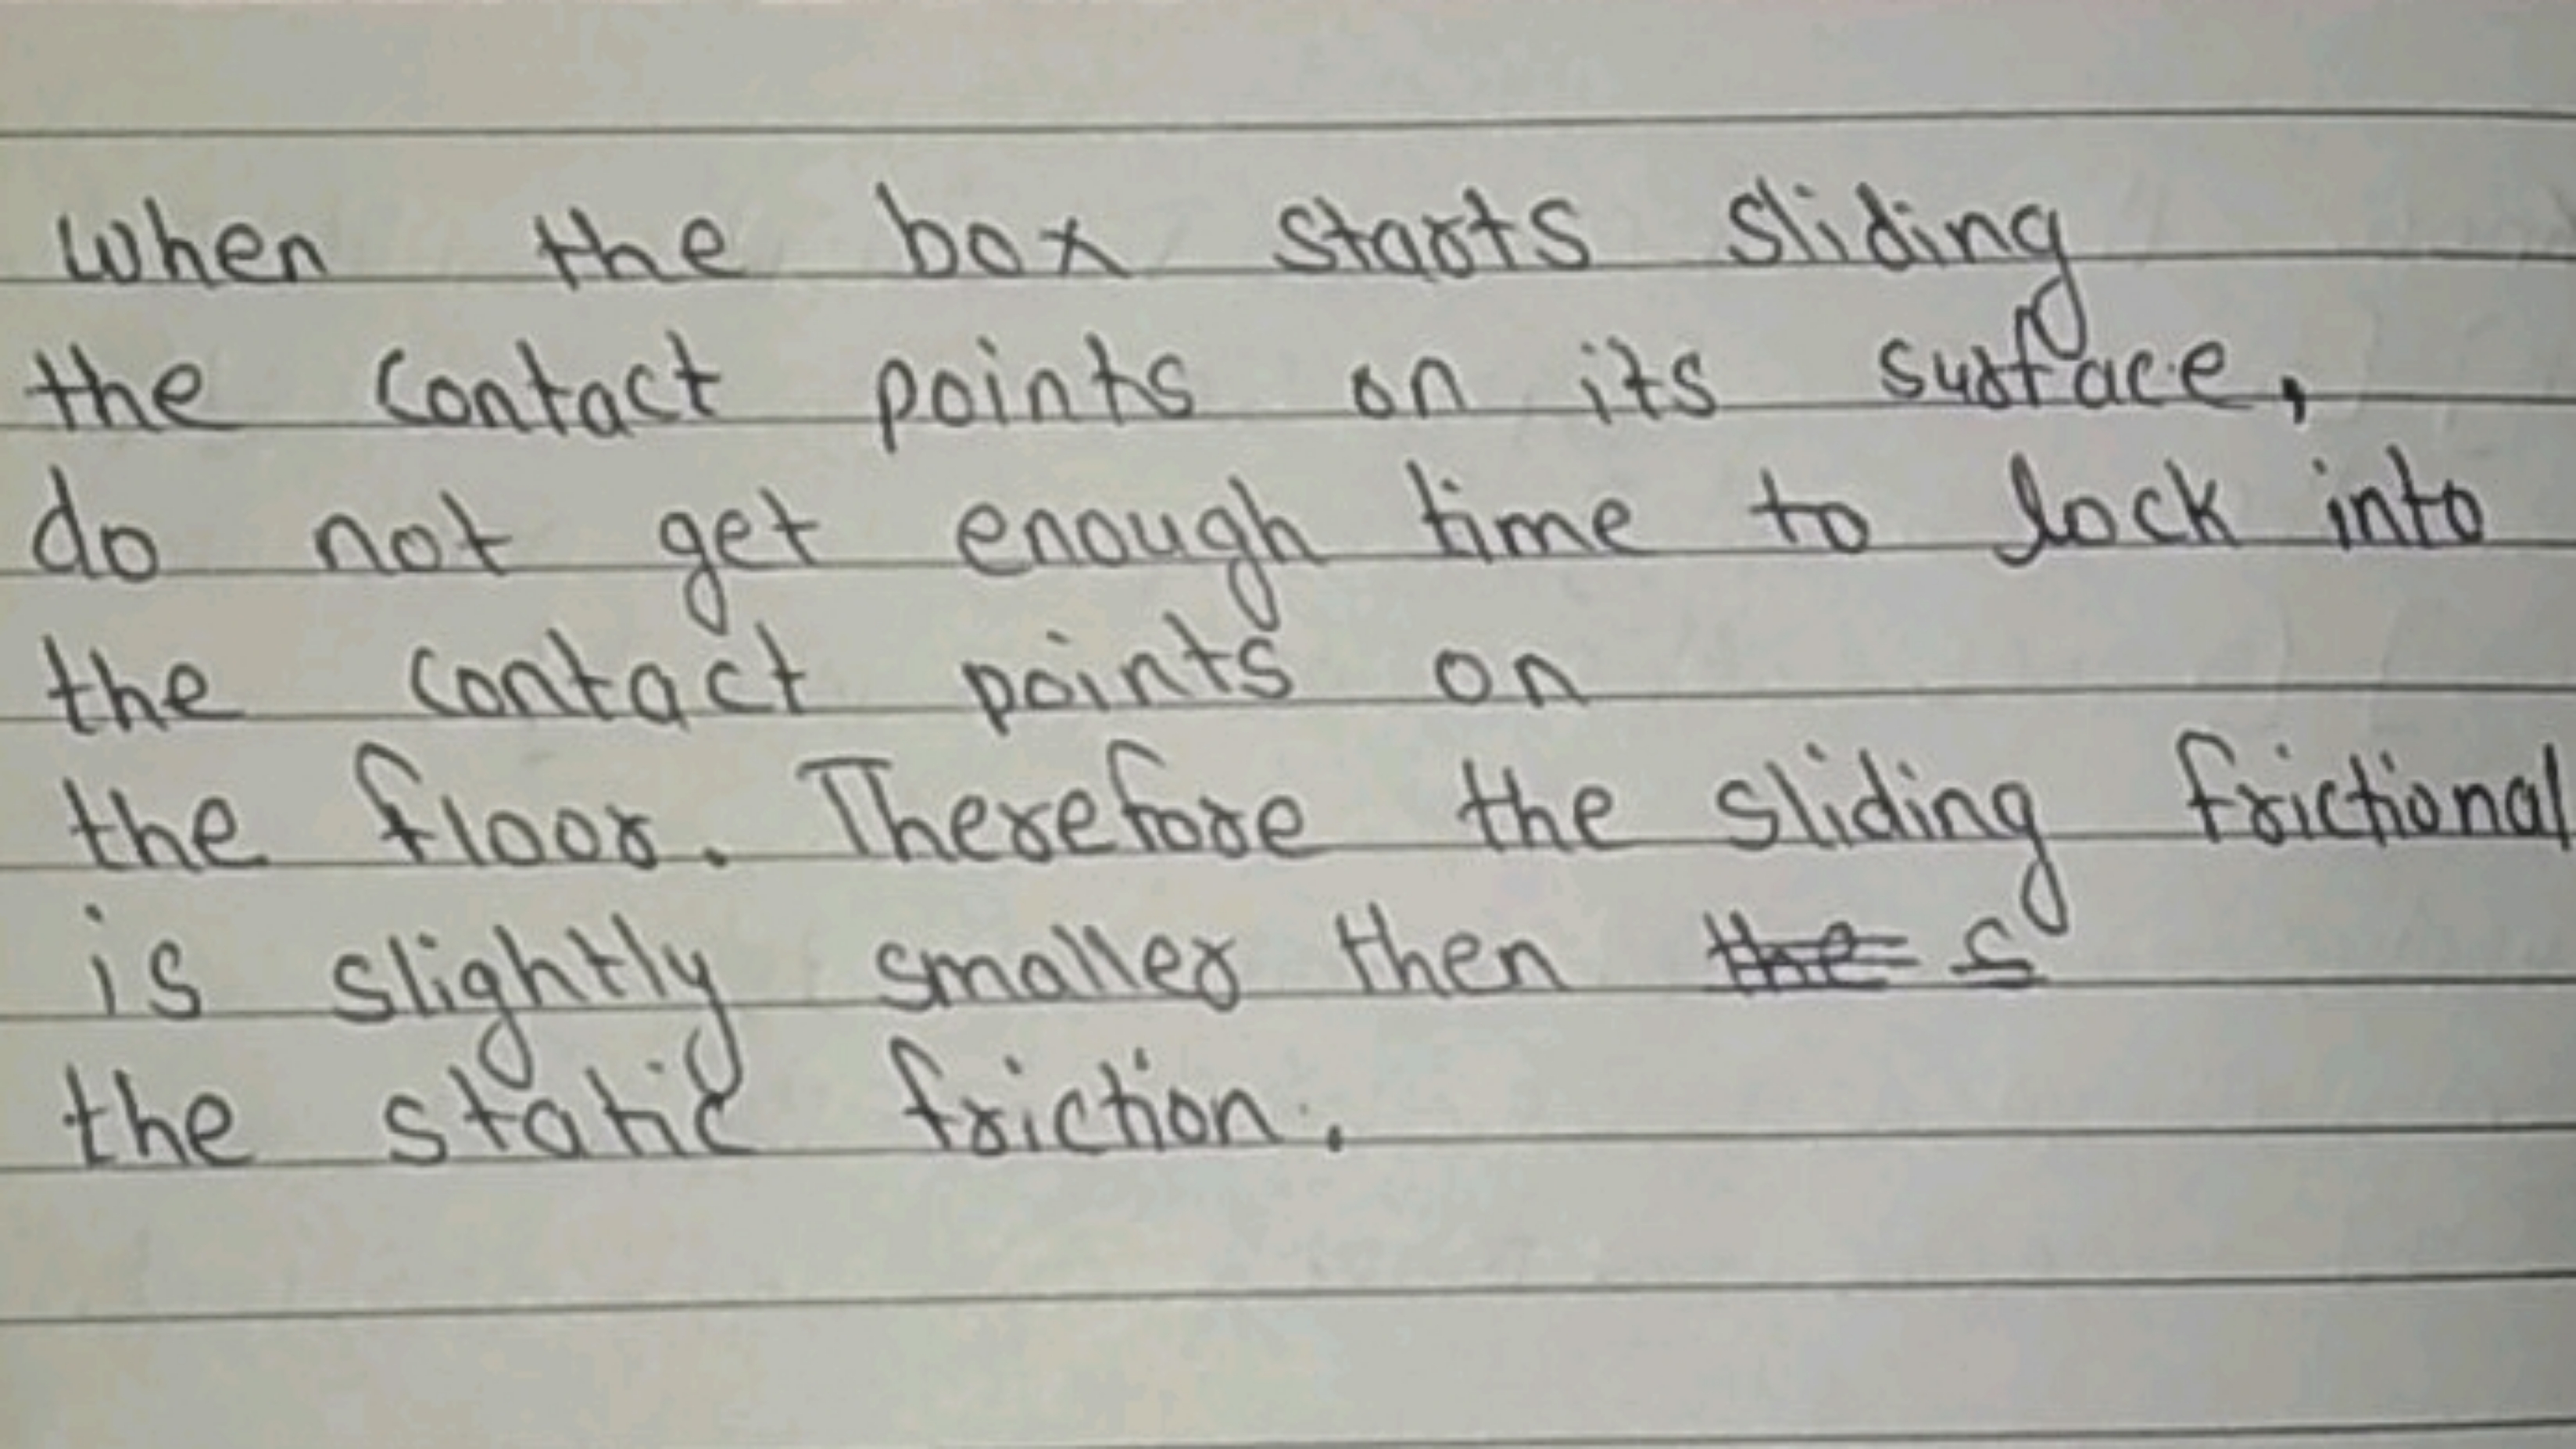 When the box starts sliding
the contact points on its surface,
do not get enough time to lock into
the contact points on
the floor. Therefore the sliding frictional
is slightly smaller then the s
the static friction.